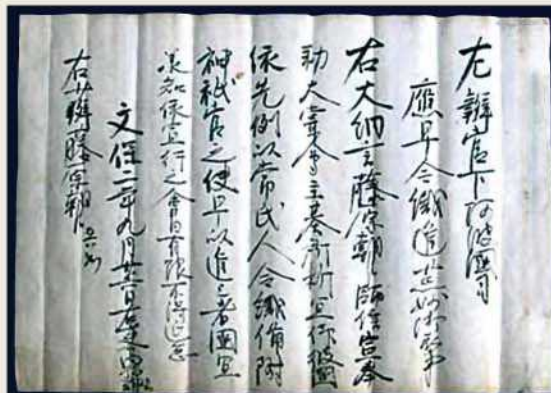 左辨官下阿波國司
應早令織進麁妙御衣事
右大納言藤原朝臣師信宣奉
勅大嘗會主基所析宜仰彼國
依先例以氏人令織備附
神祇官之使早以進上者國宜
承知依宣行之會日有限不得延怠
文保二年九月日
右少辨藤原朝臣